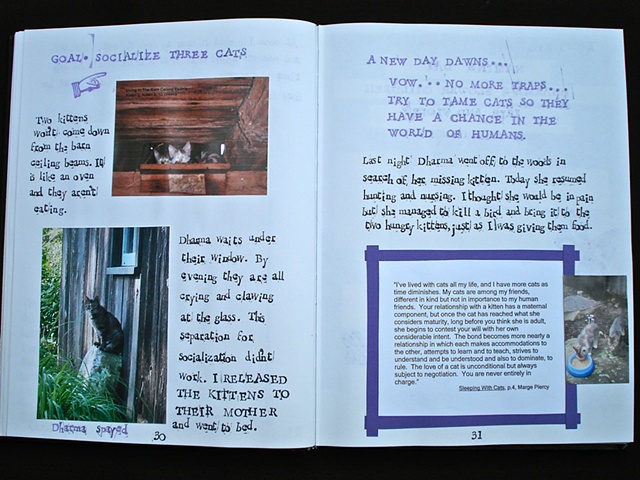 GOAL: SOCIALIZE THREE CATS
Two kittens
won't come down
from the barn
ceiling beams. It
is like an oven
and they aren't
eating.
Dharma waits under
their window. By
evening they are all
crying and clawing
at the glass. This
separation for
socialization didn't
work. I RELEASED
THE KITTENS TO
THEIR MOTHER
and went to bed.
Dharma spayed
30
A NEW DAY DAWNS...
VOW... NO MORE TRAPS...
TRY TO TAME CATS SO THEY
HAVE A CHANCE IN THE
WORLD OF HUMANS.
Last night Dharma went off to the woods in
search of her missing kitten. Today she resumed
hunting and nursing. I thought she would be in pain
but she managed to kill a bird and bring it to the
two hungry kittens, just as I was giving them food.
"I've lived with cats all my life, and I have more cats as
time diminishes. My cats are among my friends,
different in kind but not in importance to my human
friends. Your relationship with a kitten has a maternal
component, but once the cat has reached what she
considers maturity, long before you think she is adult,
she begins to contest your will with her own
considerable intent. The bond becomes more nearly a
relationship in which each makes accommodations to
the other, attempts to learn and to teach, strives to
understand and be understood and also to dominate, to
rule. The love of a cat is unconditional but always
subject to negotiation. You are never entirely in
charge."
Sleeping With Cats, p.4, Marge Piercy
31